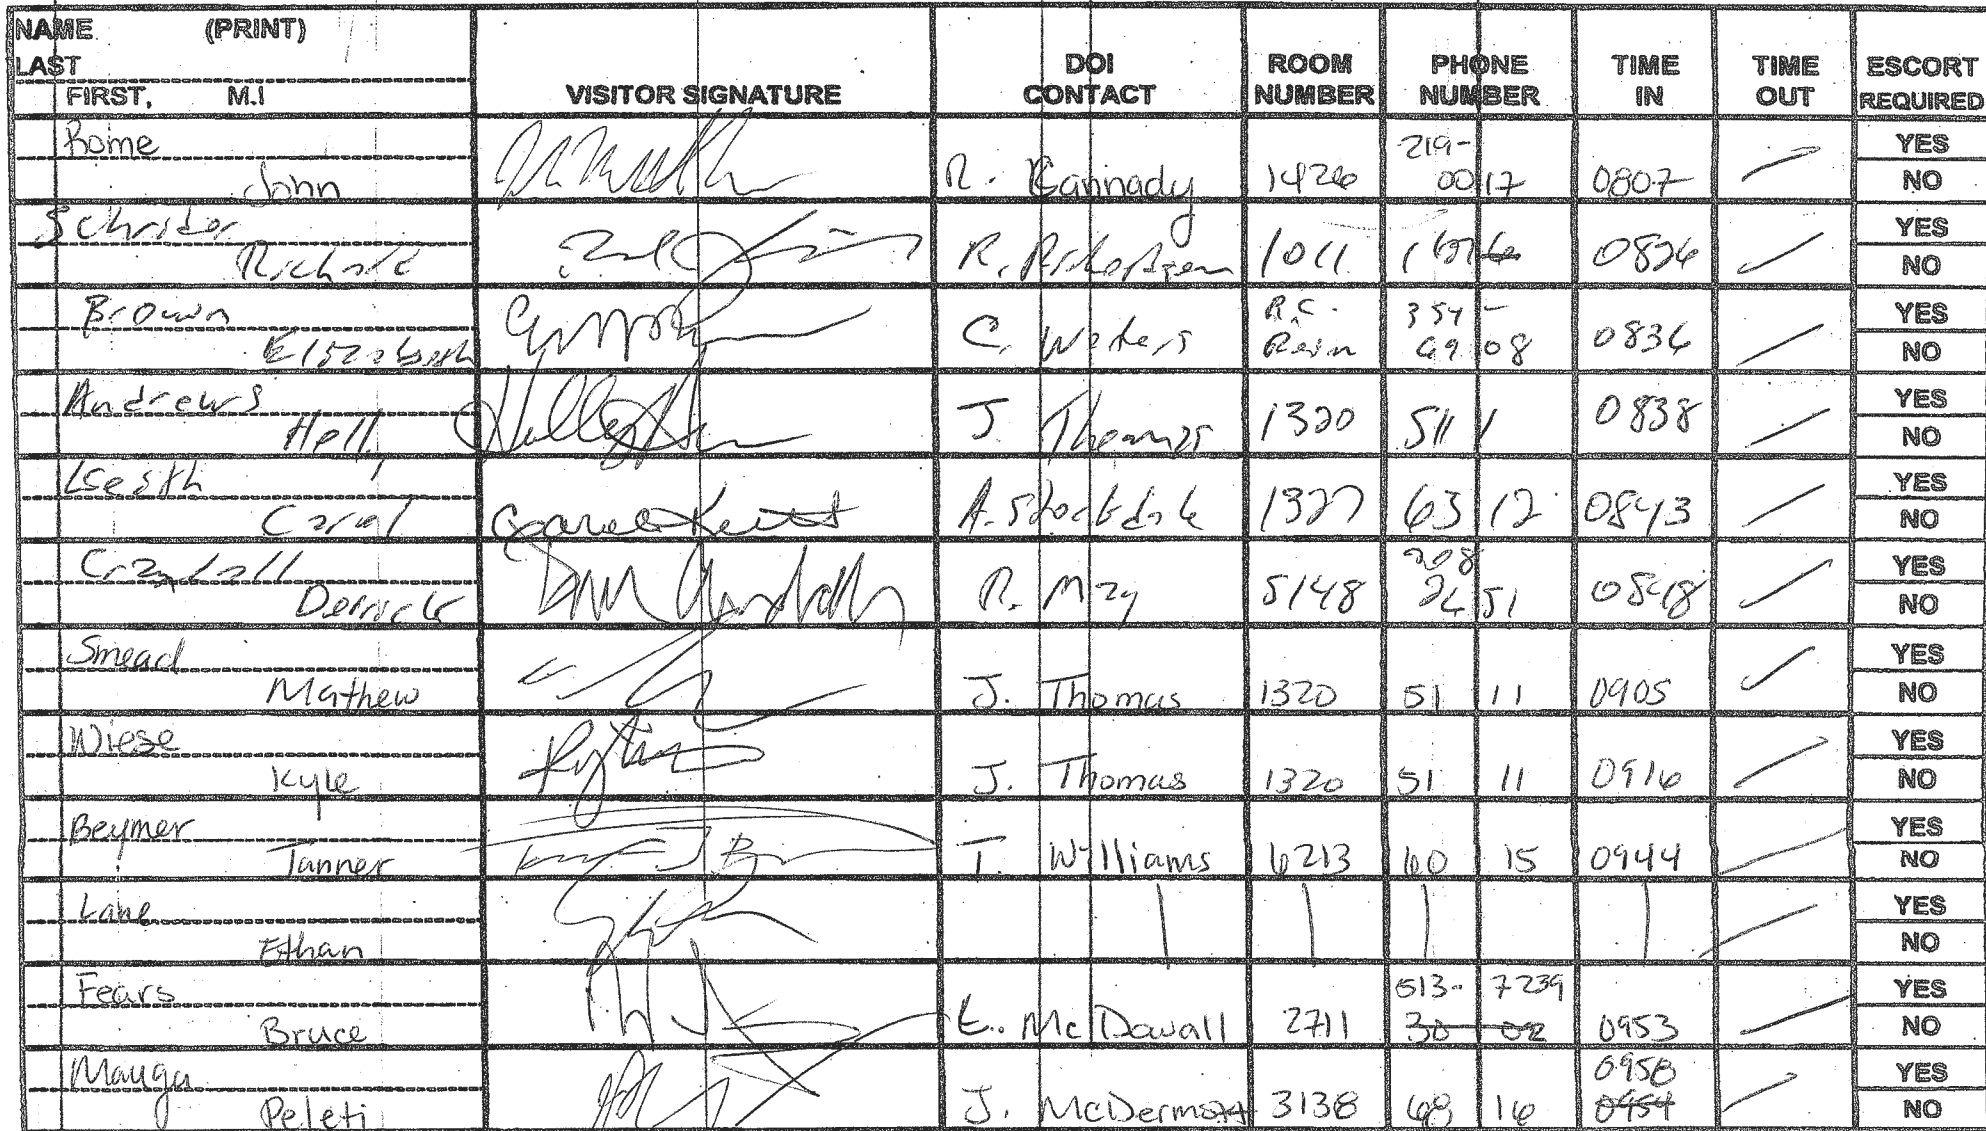 NAME (PRINT)
LAST
FIRST, M.I
VISITOR SIGNATURE
DOI CONTACT
ROOM NUMBER
PHONE NUMBER
TIME IN
TIME OUT
ESCORT REQUIRED
Rome
John
R. Cannady 1426 219-0017 0807 YES NO
Schrider
Richard
R. 1011 0826 YES NO
Brown
Elizabeth
C. Waters R.C. 354- 08 0836 YES NO
Andrews
J Thomas 1320 5111 0838 YES NO
Keith
Carol
Carol Keith
A. Stockdale 1327 6312 0843 YES NO
Crandall
Derrick
R. May 5148 208 2651 0848 YES NO
Smead
Mathew
J. Thomas 1320 5111 0905 YES NO
Wiese
Kyle
J. Thomas 1320 5111 0916 YES NO
Beymer
Tanner
T. Williams 6213 6015 0944 YES NO
Lane
Ethan
YES NO
Fears
Bruce
E. McDowall 2711 513-7239 3002 0953 YES NO
Mauga
Peleti
J. McDermott 3138 6816 0958 0954 YES NO